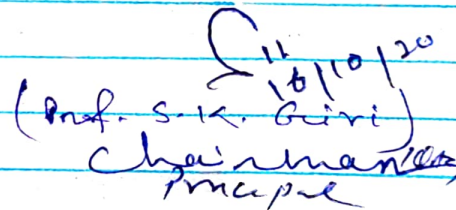 16/10/20
(Prof. S.K. Giri)
Chairman
Principal